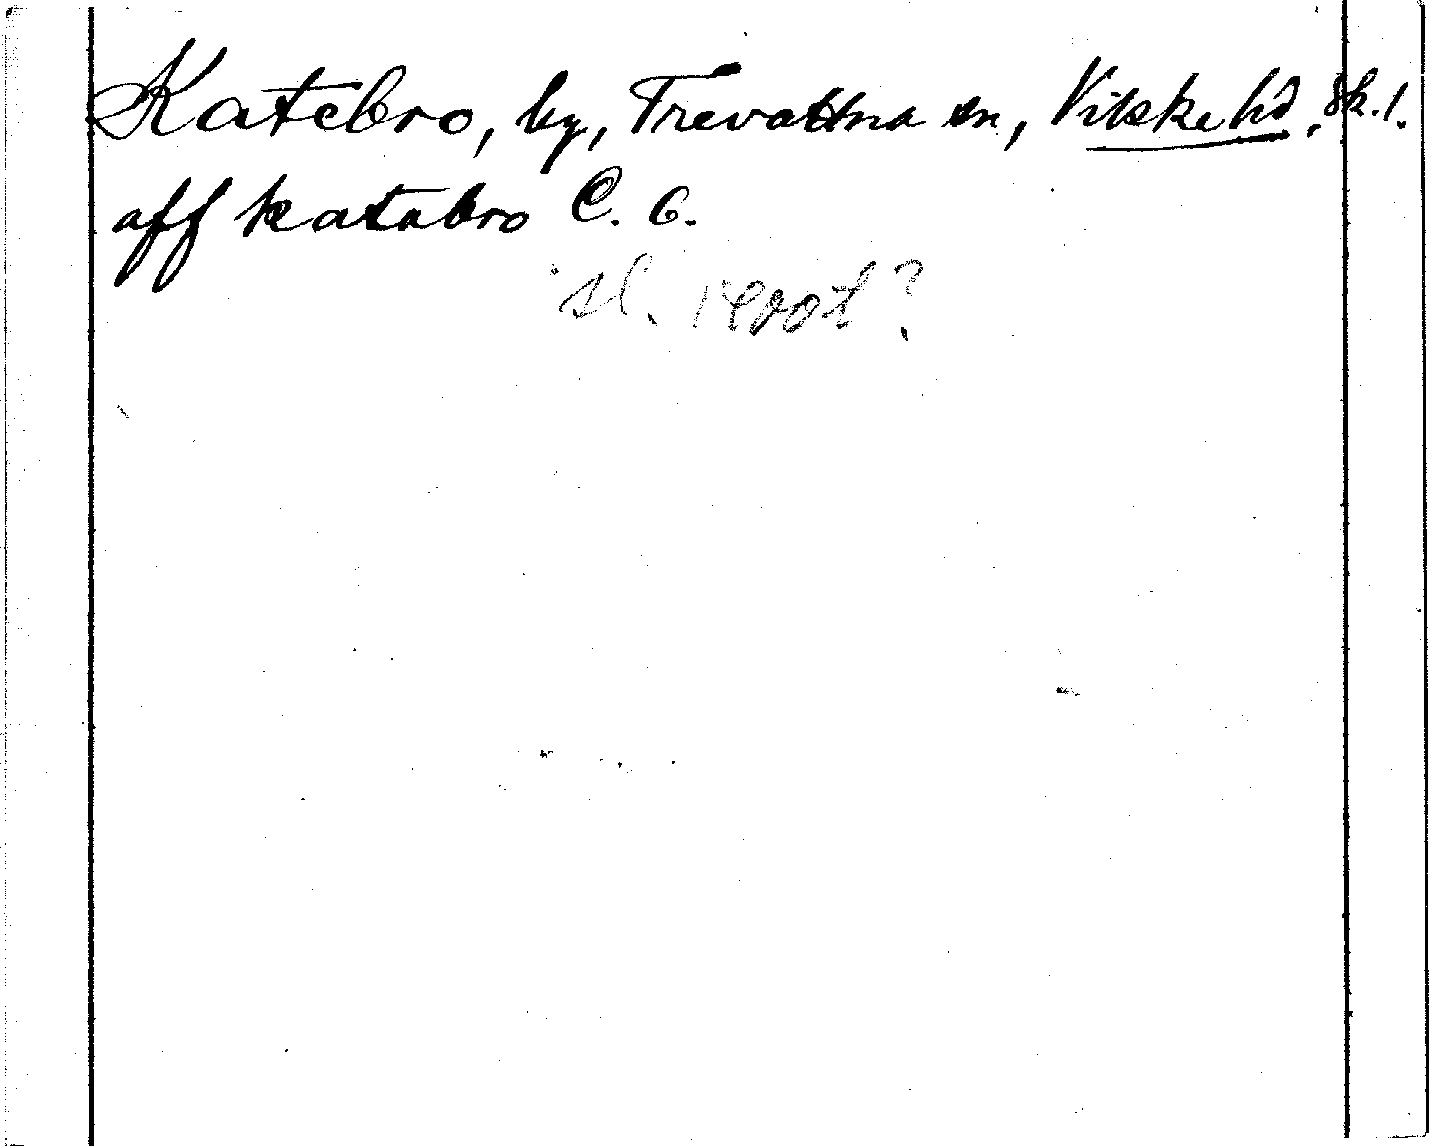 Katebro, by, Trevattna sn, Vilske hd, Sk. l.
aff katabro C. 6.
sl.